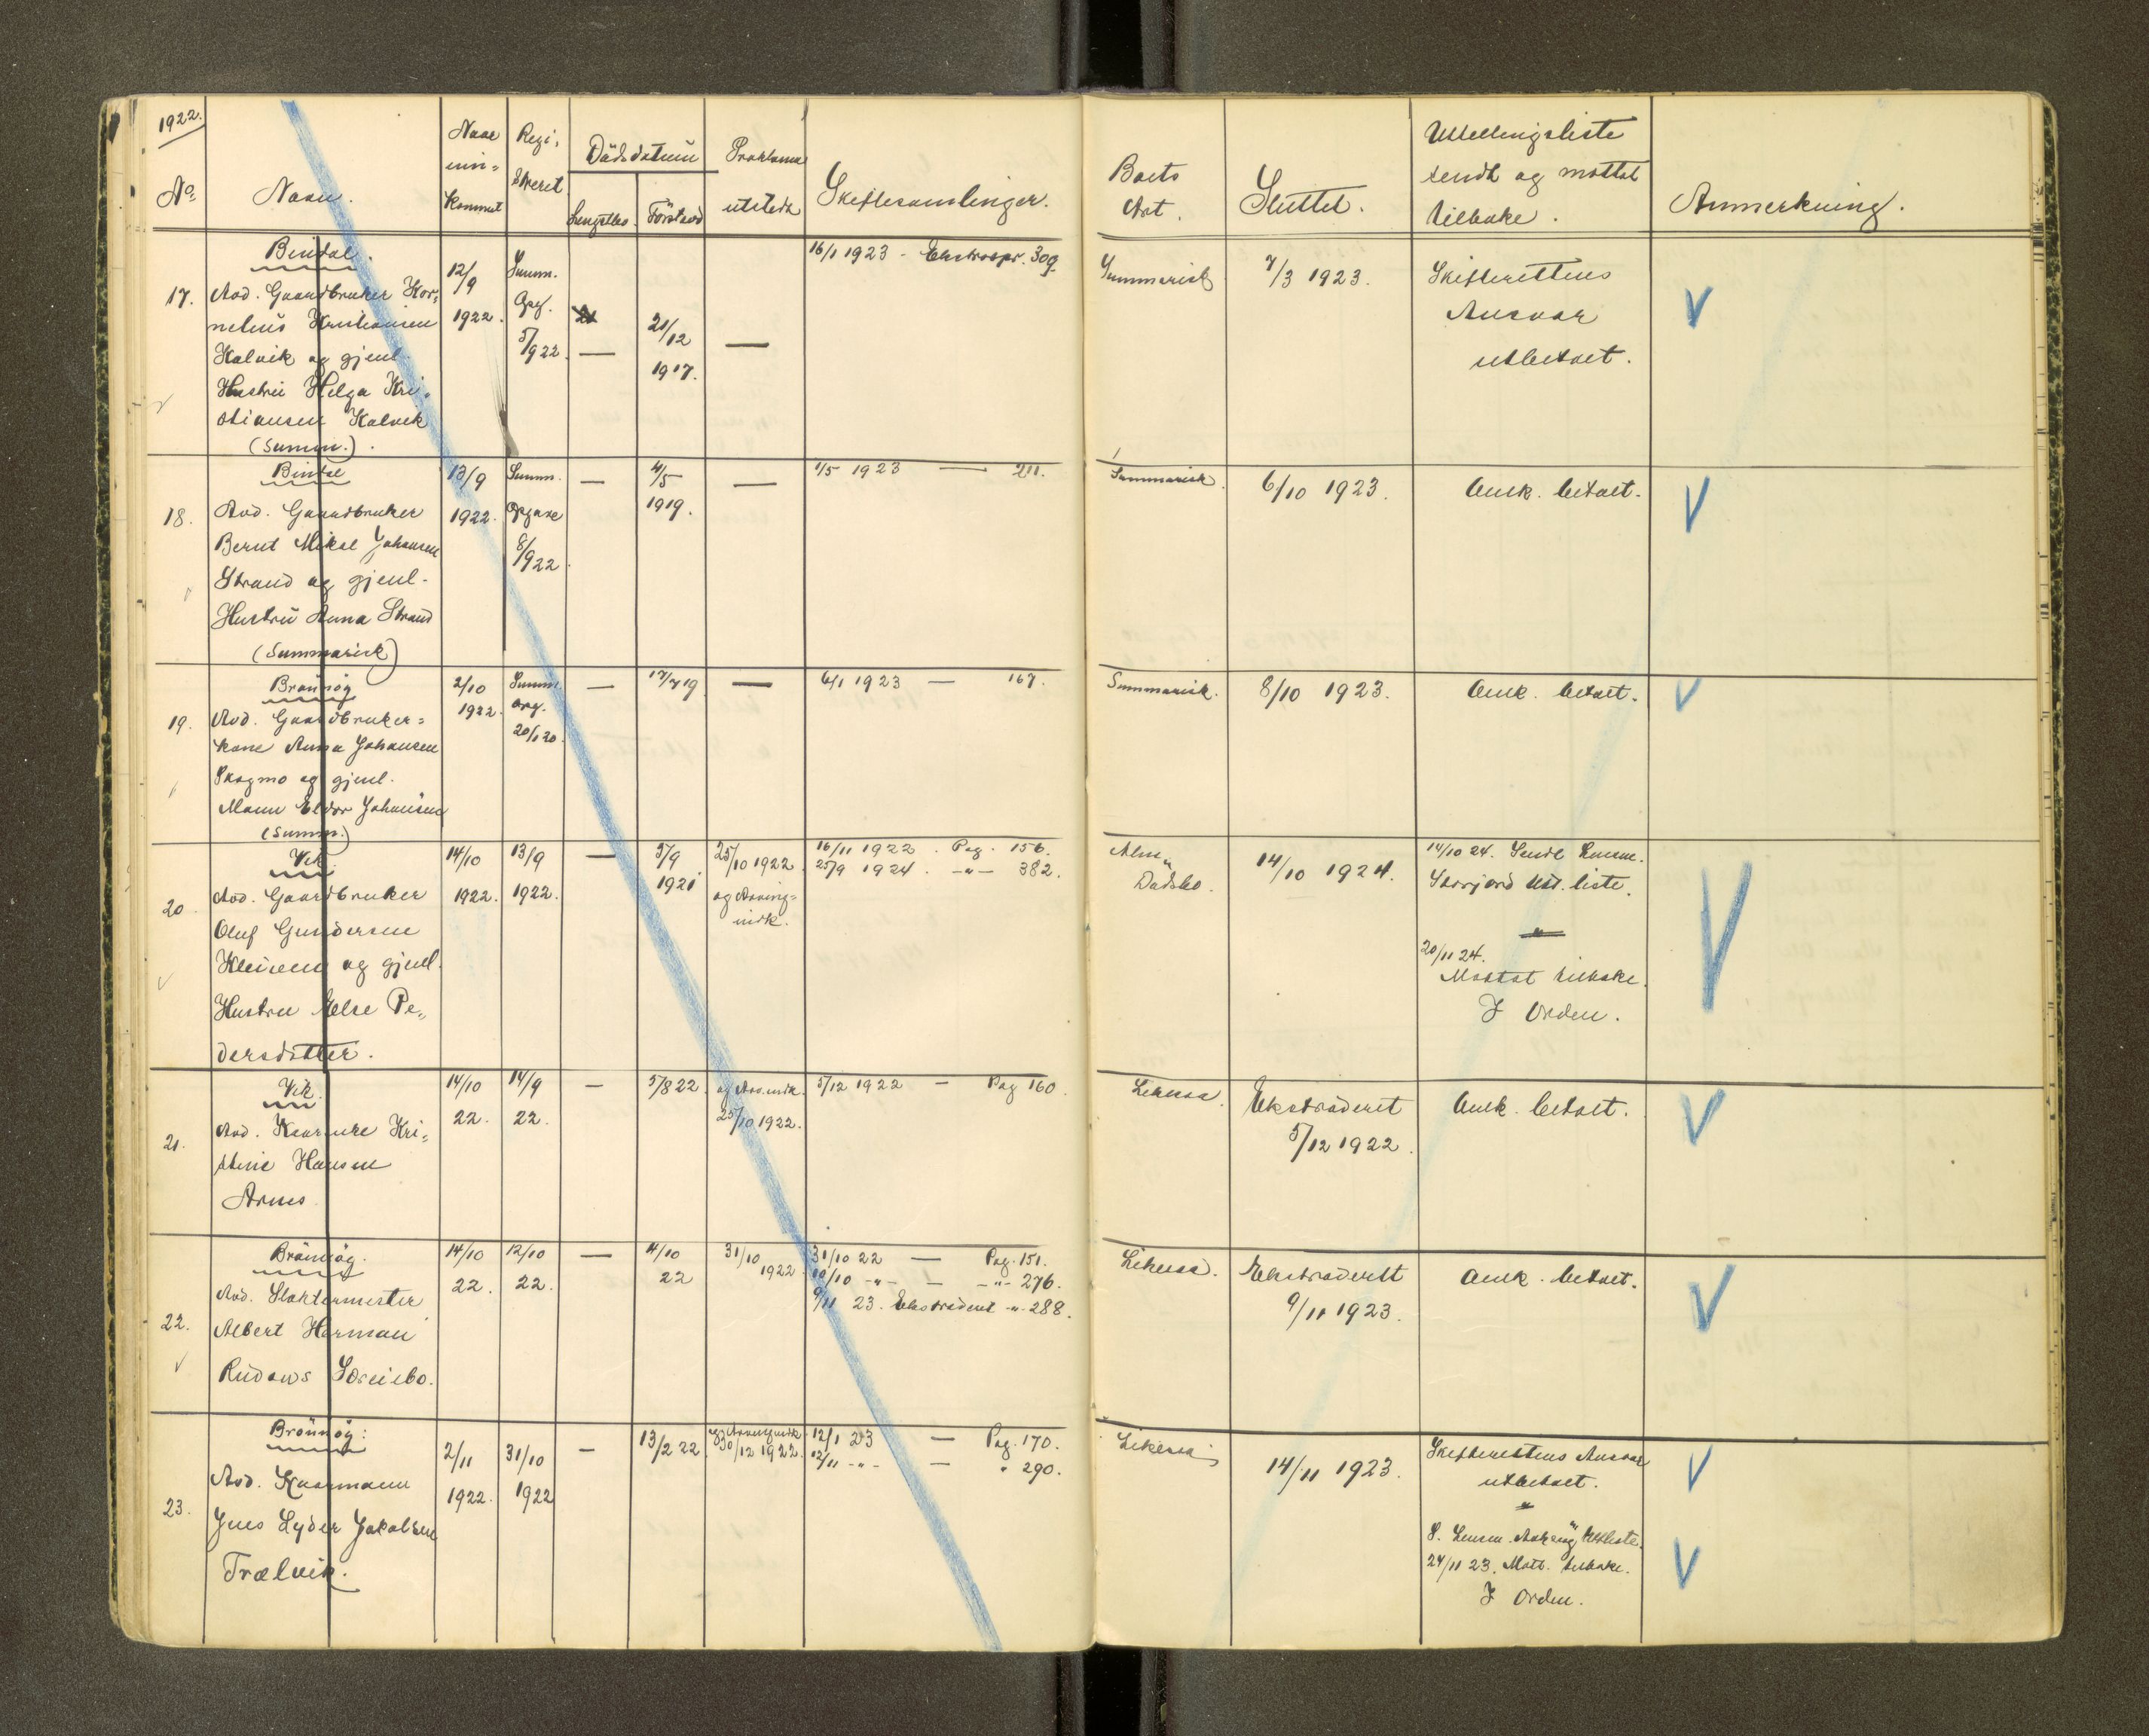 1922.
No. Navn. Naar inn= kommet Regi= streret Dödsdatum Lengstlev. Förstavd Proklama utstedt Skiftesamlinger. Boets Art. Sluttet. Utdelingsliste sendt og mottat tilbake. Anmerkning.
Bindal.
17.
Avd. Gaardbruker Kor=
nelius Kristiansen
Kalvik og gjenl.
Hustru Helga Kri=
stiansen Kalvik
(Summ.).
12/9
1922.
Summ.
Opg.
5/9 22.
—
21/12
1917.
—
16/1 1923 - Ekstrapr. 309.
Summarisk
7/3 1923.
Skifterettens
Ansvar
utbetalt.
Bindal
18.
Avd. Gaardbruker
Bernt Mikal Johansen
Strand og gjenl.
Hustru Anna Strand
(Summarisk)
13/9
1922.
Summ.
Opgave
8/9 22.
—
4/5
1919.
—
1/5 1923 — 211.
Summarisk.
6/10 1923.
Omk. betalt.
Brönnöy
19.
Avd. Gaardbruker=
kone Anna Johansen
Skogmo og gjenl.
Mann Eldor Johansen
(Summ.)
2/10
1922.
Summ.
opg.
20/1 20.
—
17/7 19
—
6/1 1923 — 167.
Summarisk.
8/10 1923.
Omk. betalt.
Vik.
20.
Avd. Gaardbruker
Oluf Gundersen
og gjenl.
Hustru Else Pe=
dersdatter.
14/10
1922.
13/9
1922.
—
5/9
1921
25/10 1922
og Arving=
indk.
16/11 1922. Pag. 156.
25/9 1924. -"- 382.
Alm.
Dödsbo.
14/10 1924.
14/10 24. Sendt Lensm.
Storjord Utd. liste.
"
20/11 24.
Mottat tilbake.
I Orden.
Vik.
21.
Avd. Kaarmke Kri=
stine Hansen
Arnes
14/10
22.
14/9
22.
—
5/8 22.
og Arv. indk.
25/10 1922.
5/12 1922 — Pag 160.
Likvid.
Ekstraderet
5/12 1922.
Omk. betalt.
Brönnöy.
22.
Avd. Slaktermester
Albert Herman
14/10
22.
12/10
22.
—
4/10
22
31/10
1922.
31/10 22 — Pag. 151.
10/10 -"- — -"- 276.
9/11 23. Ekstraderet -"- 288.
Ekstraderett
9/11 1923.
Omk. betalt.
Brönnöy:
23.
Avd. Kaarmann
Jens Lyder Jakobsen
Trælvik.
2/11
1922.
31/10
1922
—
13/2 22
og Arvingindk.
30/12 1922.
12/1 23 — Pag. 170.
12/11 -"- — " 290.
14/11 1923.
Skifterettens Ansvar
utbetalt.
"
S. Lensm. Utliste.
24/11 23. Mott. tilbake.
I Orden.